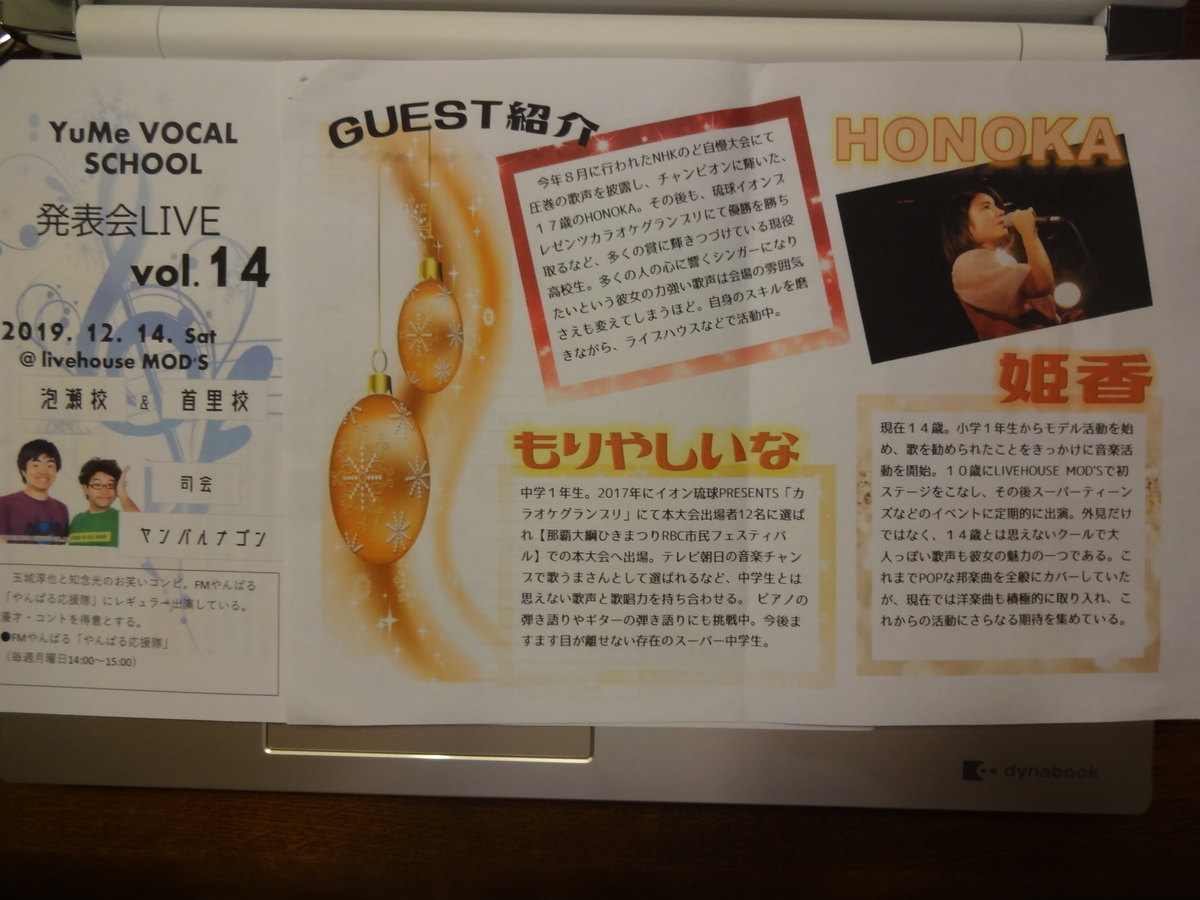 YuMe VOCAL
SCHOOL
発表会LIVE
vol.14
2019. 12. 14. Sat
@ livehouse MOD'S
泡瀬校 & 首里校
司会
ヤンバルナゴン
玉城淳也と知念光のお笑いコンビ。FMやんばる
「やんばる応援隊」にレギュラー出演している。
漫才・コントを得意とする。
●FMやんばる「やんばる応援隊」
(毎週月曜日14:00～15:00)
GUEST紹介
今年８月に行われたNHKのど自慢大会にて
圧巻の歌声を披露し、チャンピオンに輝いた、
１７歳のHONOKA。その後も、琉球イオンプ
レゼンツカラオケグランプリにて優勝を勝ち
取るなど、多くの賞に輝きつづけている現役
高校生。多くの人の心に響くシンガーになり
たいという彼女の力強い歌声は会場の雰囲気
さえも変えてしまうほど。自身のスキルを磨
きながら、ライブハウスなどで活動中。
HONOKA
もりやしいな
中学１年生。2017年にイオン琉球PRESENTS「カ
ラオケグランプリ」にて本大会出場者12名に選ば
れ【那覇大綱ひきまつりRBC市民フェスティバ
ル】での本大会へ出場。テレビ朝日の音楽チャン
プで歌うまさんとして選ばれるなど、中学生とは
思えない歌声と歌唱力を持ち合わせる。 ピアノの
弾き語りやギターの弾き語りにも挑戦中。今後ま
すます目が離せない存在のスーパー中学生。
姫香
現在１４歳。小学１年生からモデル活動を始
め、歌を勧められたことをきっかけに音楽活
動を開始。１０歳にLIVEHOUSE MOD'Sで初
ステージをこなし、その後スーパーティーン
ズなどのイベントに定期的に出演。外見だけ
ではなく、１４歳とは思えないクールで大
人っぽい歌声も彼女の魅力の一つである。こ
れまでPOPな邦楽曲を全般にカバーしていた
が、現在では洋楽曲も積極的に取り入れ、こ
れからの活動にさらなる期待を集めている。
dynabook